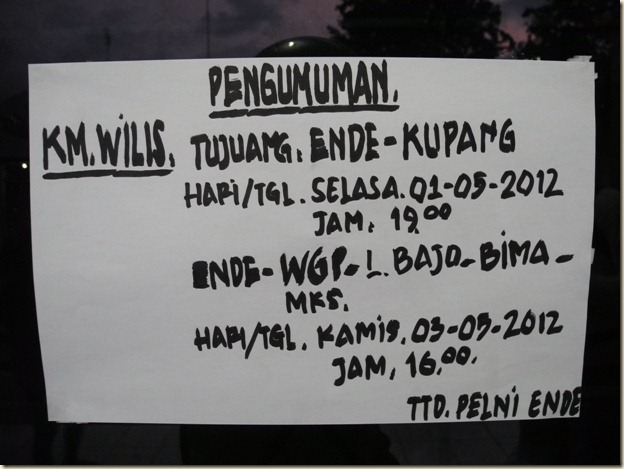 PENGUMUMAN.
KM. WILIS. TUJUANG: ENDE-KUPANG
HARI/TGL. SELASA. 01-05-2012
JAM: 19.00
ENDE-WGP-L. BAJO-BIMA-
MKS.
HARI/TGL. KAMIS. 03-05-2012
JAM, 16.00.
TTD. PELNI ENDE